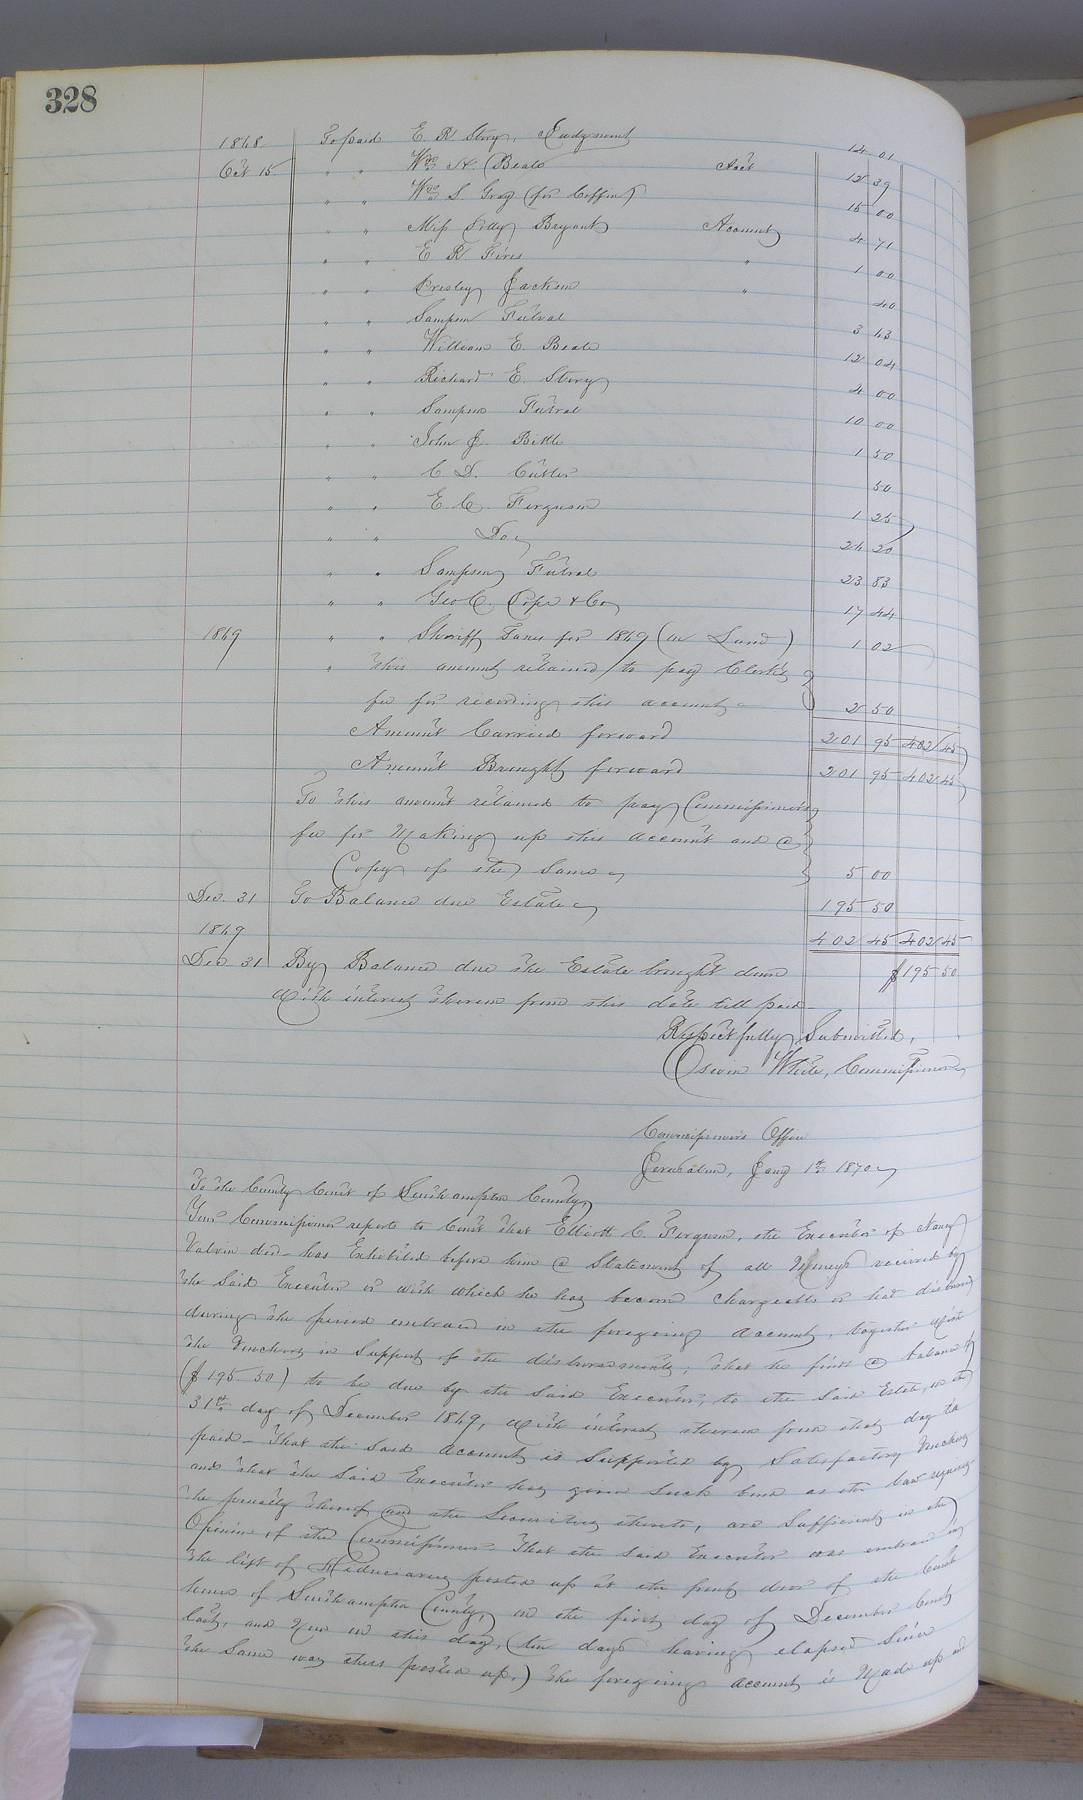 328
1868 To paid E R Story, Judgment 14 01
Oct 15 " " Wm H. Beale Acct 12 39
" " Wm S. Gray (for Coffin) 15 00
" " Miss Sally Bryant Account 4 71
" " E R " 1 00
" " Presley Jackson " 40
" " Sampson Futral 3 63
" " William E. Beale 12 04
" " Richard E. Story 4 00
" " Sampson Futral 10 00
" " John J. 1 50
" " C D. Cutler 50
" " E. C. Ferguson 1 25
" " Do 26 20
" " Sampson Futral 23 83
" " Geo C. Pope & Co 17 44
1869 " " Sheriff Taxes for 1869 (on Land) 1 02
" This amount retained to pay Clerk's
fee for recording this account 2 50
Amount Carried forward 201 95 402 45
Amount Brought forward 201 95 402 45
To this amount retained to pay Commissioner's
fee for Making up this account and a
Copy of the Same 5 00
Dec. 31 To Balance due Estate 195 50
1869 402 45 402 45
Dec 31 By Balance due the Estate brought down $195 50
With interest thereon from this date till paid
Respectfully Submitted,
White, Commissioner
Commissioner's Office
Jerusalem, Jany 1st 1870
To the County Court of Southampton County,
Your Commissioner reports to Court that Elliott C. Ferguson, the Executor of Nancy
decd has Exhibited before him a Statement of all Moneys received by
the Said Executor or with which he has become Chargeable or had disbursed
during the period embraced in the foregoing account, together with
the Vouchers in Support of the disbursements; that he finds a balance of
($195.50) to be due by the Said Executor, to the Said Estate, on the
31st day of December 1869, with interest thereon from that day til
paid. That the Said account is Supported by Satisfactory Vouchers
and that the Said Executor has given Such bond as the law requires
the penalty thereof and the Securities thereto, are Sufficient in the
Opinion of the Commissioner. That the Said Executor was embraced in
the list of Fiduciaries posted up at the front door of the Court
house of Southampton County, on the first day of December Court
last, and Now on this day, (ten days having elapsed Since
the Same was thus posted up,) the foregoing account is Made up and